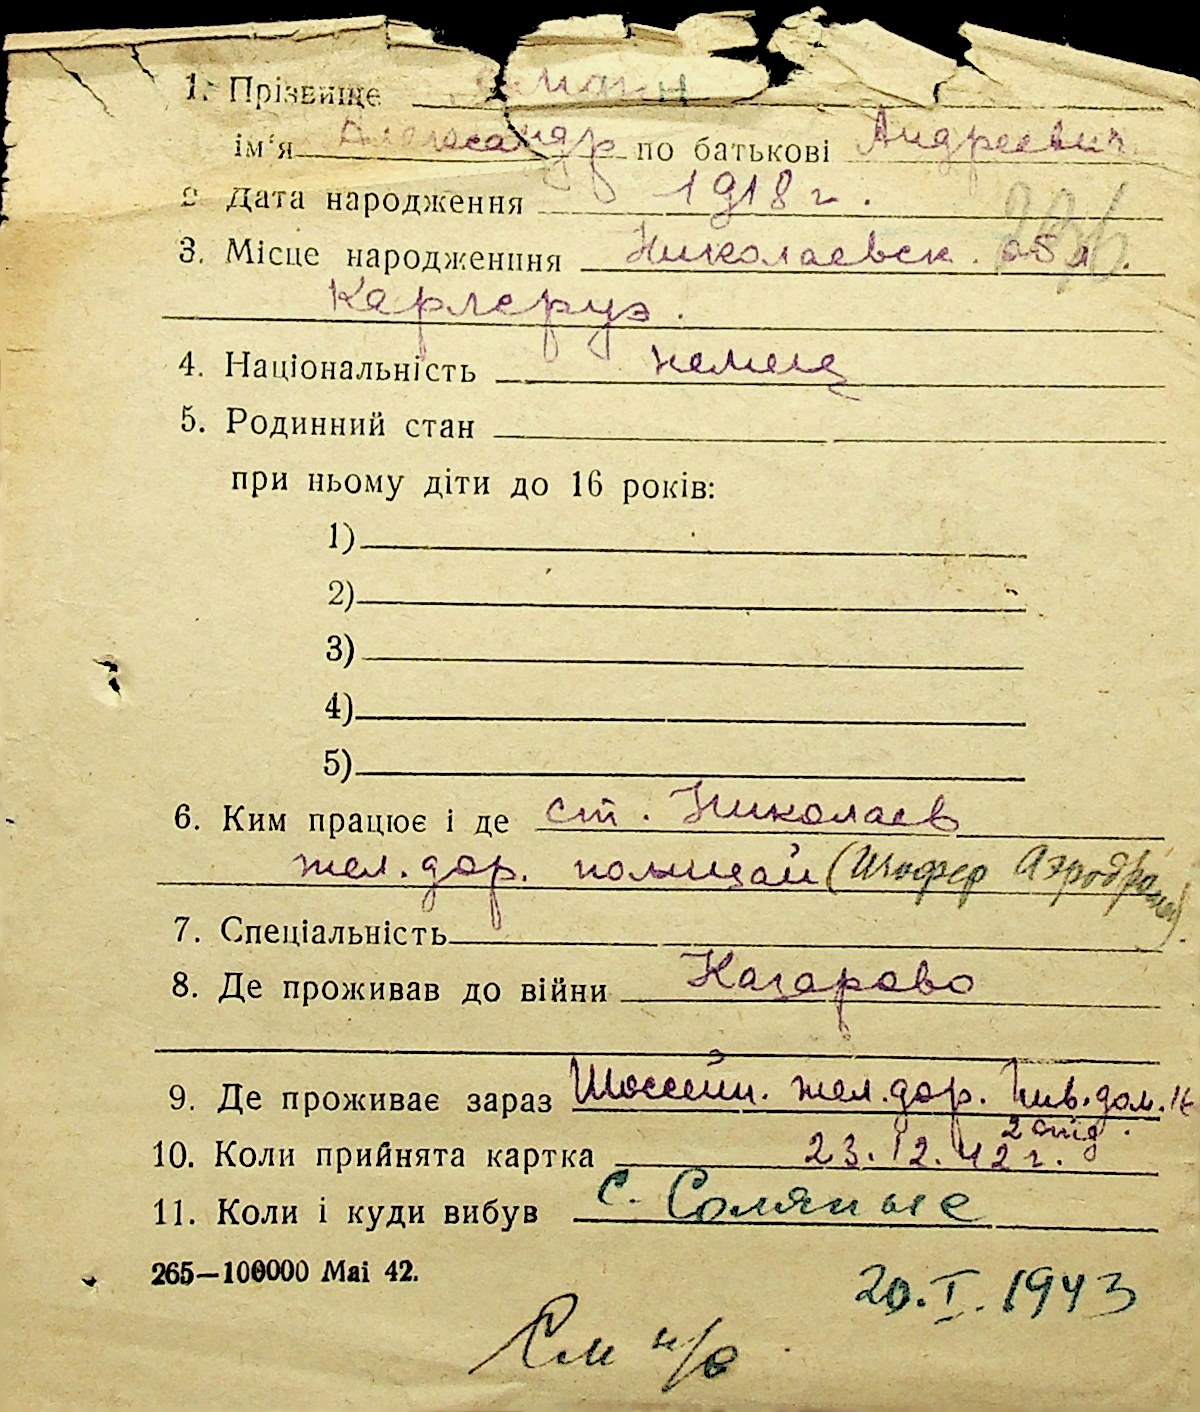 1. Прізвище
ім'я Александр по батькові Андреевич
2 Дата народження 1918 г.
3. Місце народженння Николаевск. обл.
Карлсруэ.
4. Національність немец
5. Родинний стан
при ньому діти до 16 років:
1)
2)
3)
4)
5)
6. Ким працює і де ст. Николаев
жел. дор. полицай (Шофер Аэродром)
7. Спеціальність
8. Де проживав до війни
9. Де проживає зараз Шоссейн. жел. дор. дом.
10. Коли прийнята картка 23.12.42 г.
11. Коли і куди вибув с. Соляные
265—100000 Mai 42.
20.I.1943
См н/о